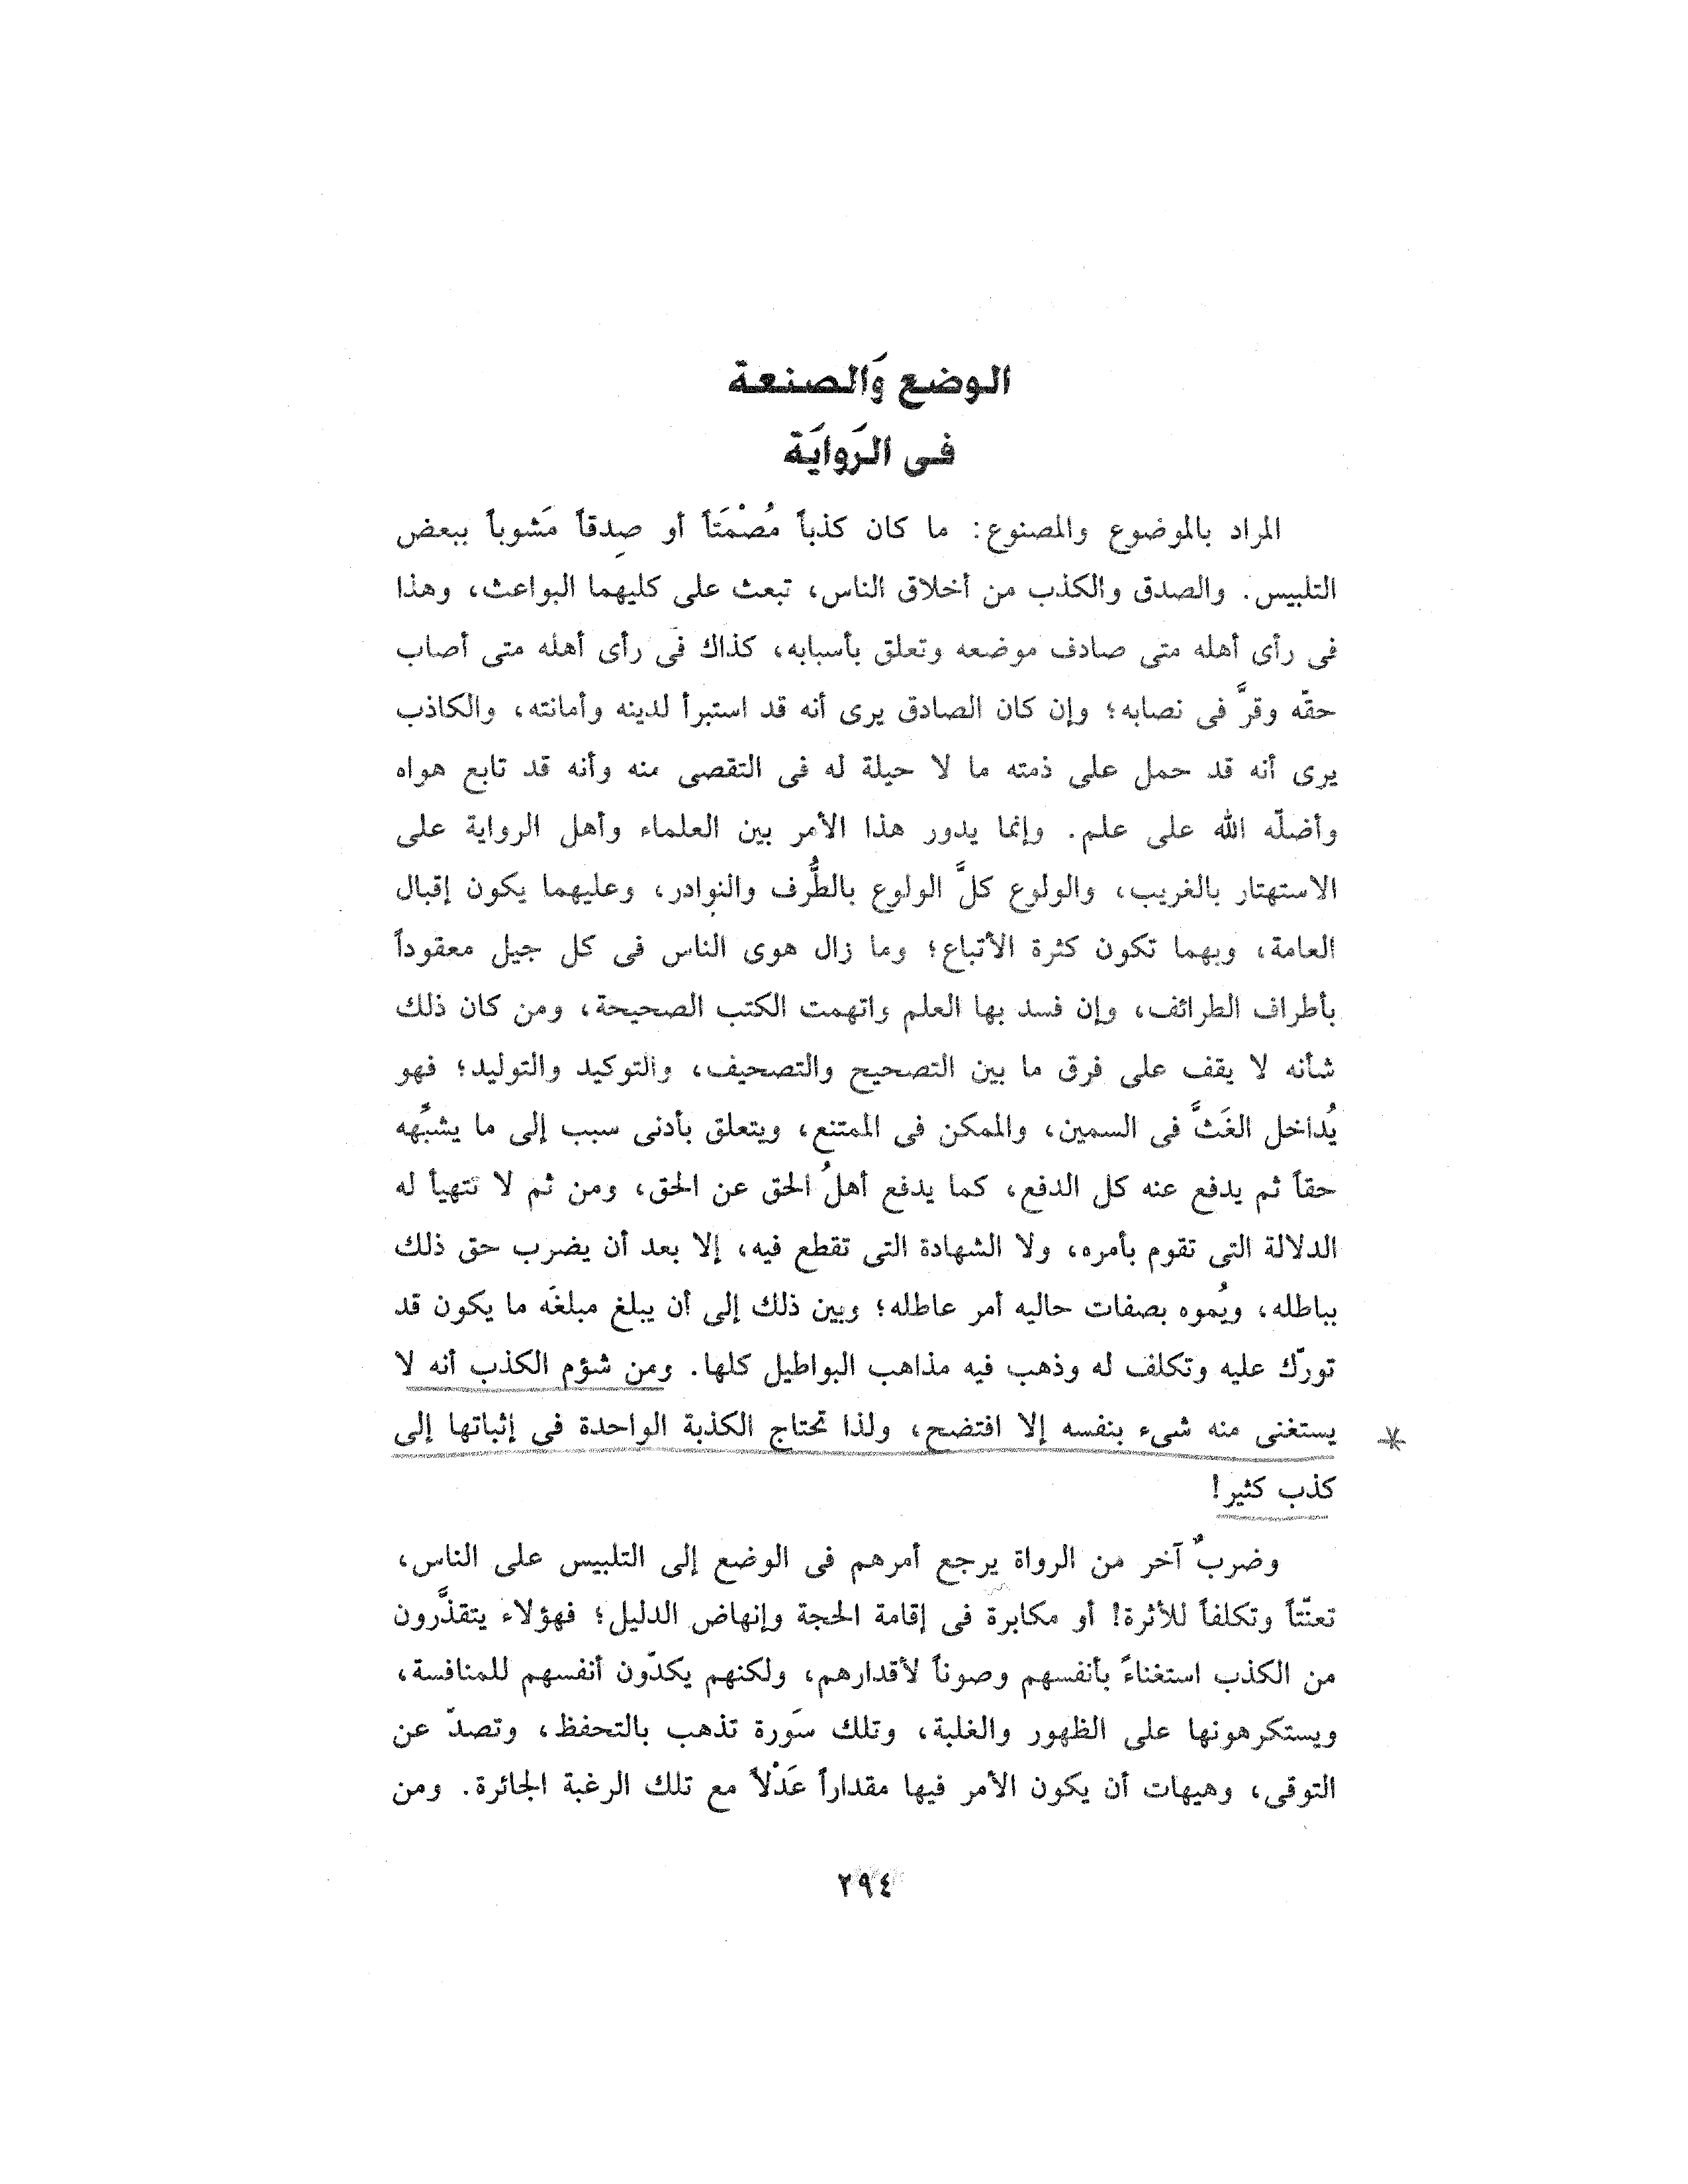 الوضع وَالصنعة
فى الرَوايَة
المراد بالموضوع والمصنوع: ما كان كذباً مُصْمَتاً أو صِدقاً مَشوباً ببعض
التلبيس. والصدق والكذب من أخلاق الناس، تبعث على كليهما البواعث، وهذا
فى رأى أهله متى صادف موضعه وتعلق بأسبابه، كذاك فى رأى أهله متى أصاب
حقّه وقرَّ فى نصابه؛ وإن كان الصادق يرى أنه قد استبرأ لدينه وأمانته، والكاذب
يرى أنه قد حمل على ذمته ما لا حيلة له فى التقصى منه وأنه قد تابع هواه
وأضلّه الله على علم. وإنما يدور هذا الأمر بين العلماء وأهل الرواية على
الاستهتار بالغريب، والولوع كلَّ الولوع بالطُّرف والنوادر، وعليهما يكون إقبال
العامة، وبهما تكون كثرة الأتباع؛ وما زال هوى الناس فى كل جيل معقوداً
بأطراف الطرائف، وإن فسد بها العلم واتهمت الكتب الصحيحة، ومن كان ذلك
شأنه لا يقف على فرق ما بين التصحيح والتصحيف، والتوكيد والتوليد؛ فهو
يُداخل الغَثَّ فى السمين، والممكن فى الممتنع، ويتعلق بأدنى سبب إلى ما يشبِّهه
حقاً ثم يدفع عنه كل الدفع، كما يدفع أهلُ الحق عن الحق، ومن ثم لا تتهيأ له
الدلالة التى تقوم بأمره، ولا الشهادة التى تقطع فيه، إلا بعد أن يضرب حق ذلك
بباطله، ويُموه بصفات حاليه أمر عاطله؛ وبين ذلك إلى أن يبلغ مبلغَه ما يكون قد
تورّك عليه وتكلف له وذهب فيه مذاهب البواطيل كلها. ومن شؤم الكذب أنه لا
يستغنى منه شىء بنفسه إلا افتضح، ولذا تحتاج الكذبة الواحدة فى إثباتها إلى
كذب كثير!
وضربٌ آخر من الرواة يرجع أمرهم فى الوضع إلى التلبيس على الناس،
تعنّتاً وتكلفاً للأثرة! أو مكابرة فى إقامة الحجة وإنهاض الدليل؛ فهؤلاء يتقذَّرون
من الكذب استغناءً بأنفسهم وصوناً لأقدارهم، ولكنهم يكدّون أنفسهم للمنافسة،
ويستكرهونها على الظهور والغلبة، وتلك سَورة تذهب بالتحفظ، وتصدّ عن
التوقى، وهيهات أن يكون الأمر فيها مقداراً عَدْلاً مع تلك الرغبة الجائرة. ومن
٢٩٤